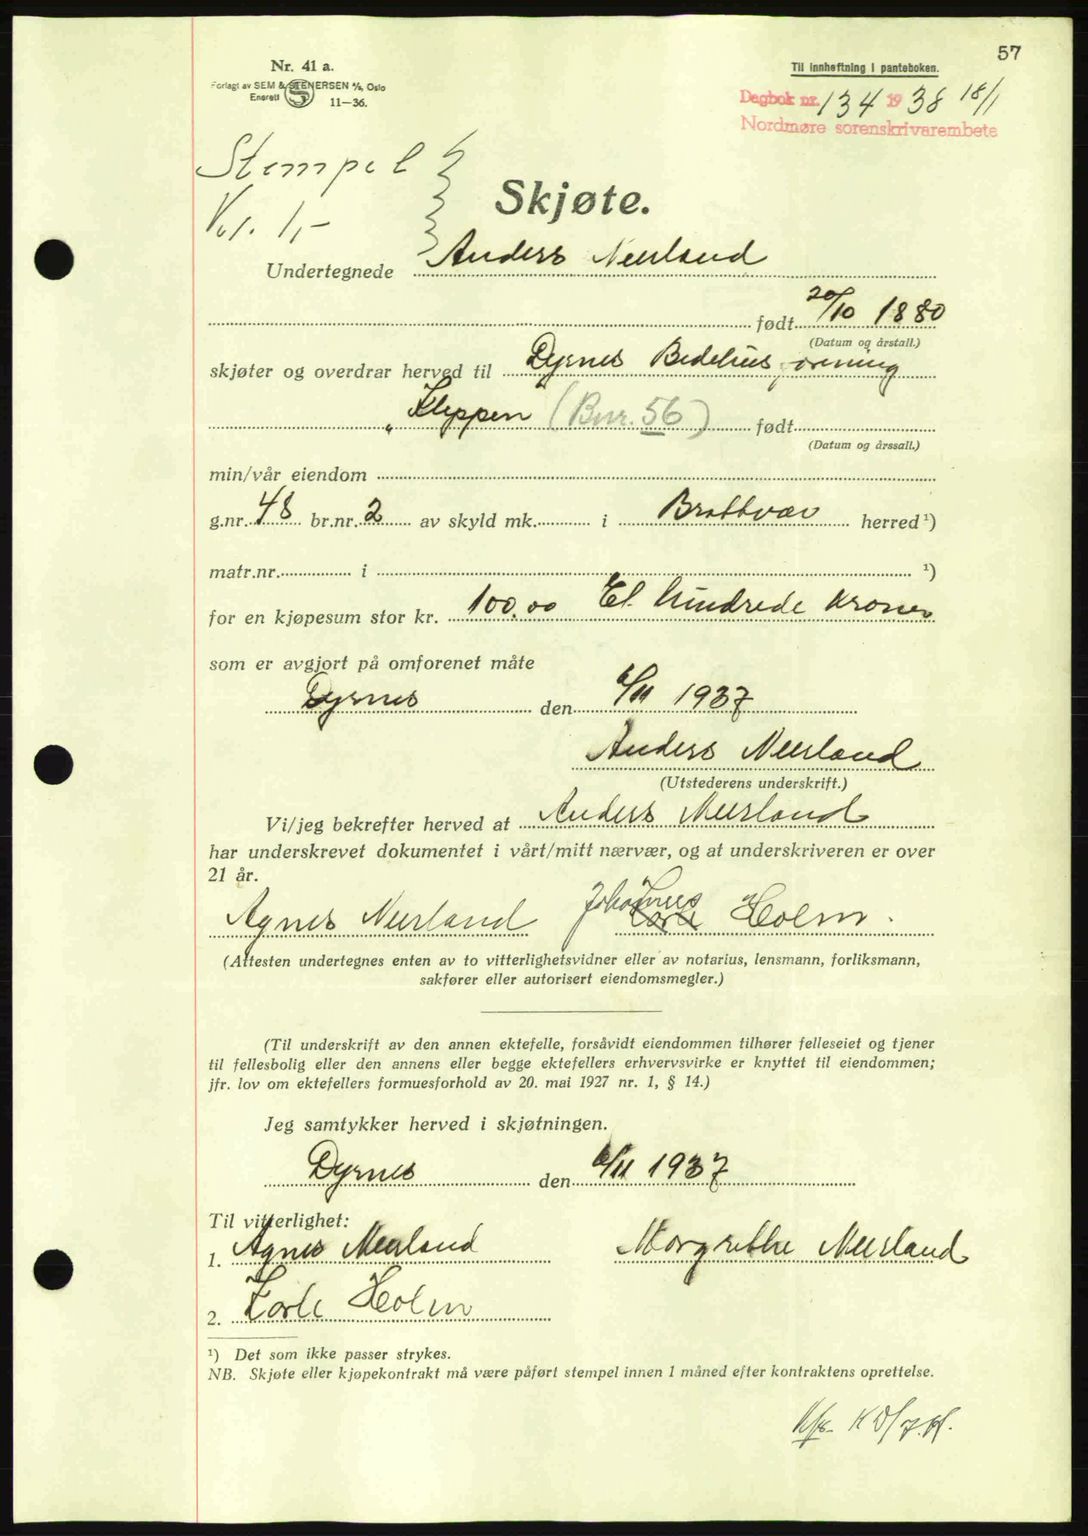 57
Nr. 41 a.
Forlagt av SEM & STENERSEN A/S, Oslo
Enerett 11—36.
Til innheftning i panteboken.
Dagbok nr. 134 1938 18/1
Nordmøre sorenskriverembete
Stempel
Kr. 1,-
Skjøte.
Undertegnede Anders Neerland
født 20/10 1880
(Datum og årstall.)
skjøter og overdrar herved til Dyrnes Bedehusforening
"Kleppen (Bnr. 56) født
(Datum og årssall.)
min/vår eiendom
g.nr. 48 br.nr. 2 av skyld mk. i Brattvær herred ¹)
matr.nr. i ¹)
for en kjøpesum stor kr. 100,00 Et hundrede kroner
som er avgjort på omforenet måte
Dyrnes den 6/11 1937
Anders Neerland
(Utstederens underskrift.)
Vi/jeg bekrefter herved at Anders Neerland
har underskrevet dokumentet i vårt/mitt nærvær, og at underskriveren er over
21 år.
Agnes Neerland Johannes Holm.
(Attesten undertegnes enten av to vitterlighetsvidner eller av notarius, lensmann, forliksmann,
sakfører eller autorisert eiendomsmegler.)
(Til underskrift av den annen ektefelle, forsåvidt eiendommen tilhører felleseiet og tjener
til fellesbolig eller den annens eller begge ektefellers erhvervsvirke er knyttet til eiendommen;
jfr. lov om ektefellers formuesforhold av 20. mai 1927 nr. 1, § 14.)
Jeg samtykker herved i skjøtningen.
Dyrnes den 6/11 1937
Til vitterlighet:
1. Agnes Neerland Margrethe Neerland
2. Holm
¹) Det som ikke passer strykes.
NB. Skjøte eller kjøpekontrakt må være påført stempel innen 1 måned efter kontraktens oprettelse.